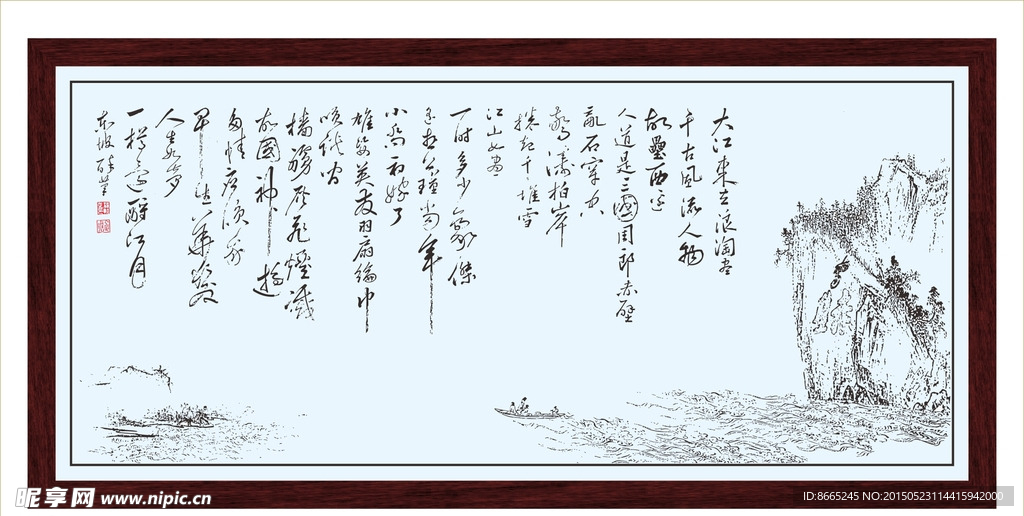 大江東去浪淘盡
千古風流人物
故壘西邊
人道是三國周郎赤壁
亂石穿空
驚濤拍岸
捲起千堆雪
江山如畫
一時多少豪傑
遙想公瑾當年
小喬初嫁了
雄姿英發羽扇綸巾
咲談間
檣艣灰飛煙滅
故國神遊
多情應咲我
早生華髮
人生如夢
一樽還酹江月
東坡醉筆
昵享网 www.nipic.cn
ID:8665245 NO:20150523114415942000